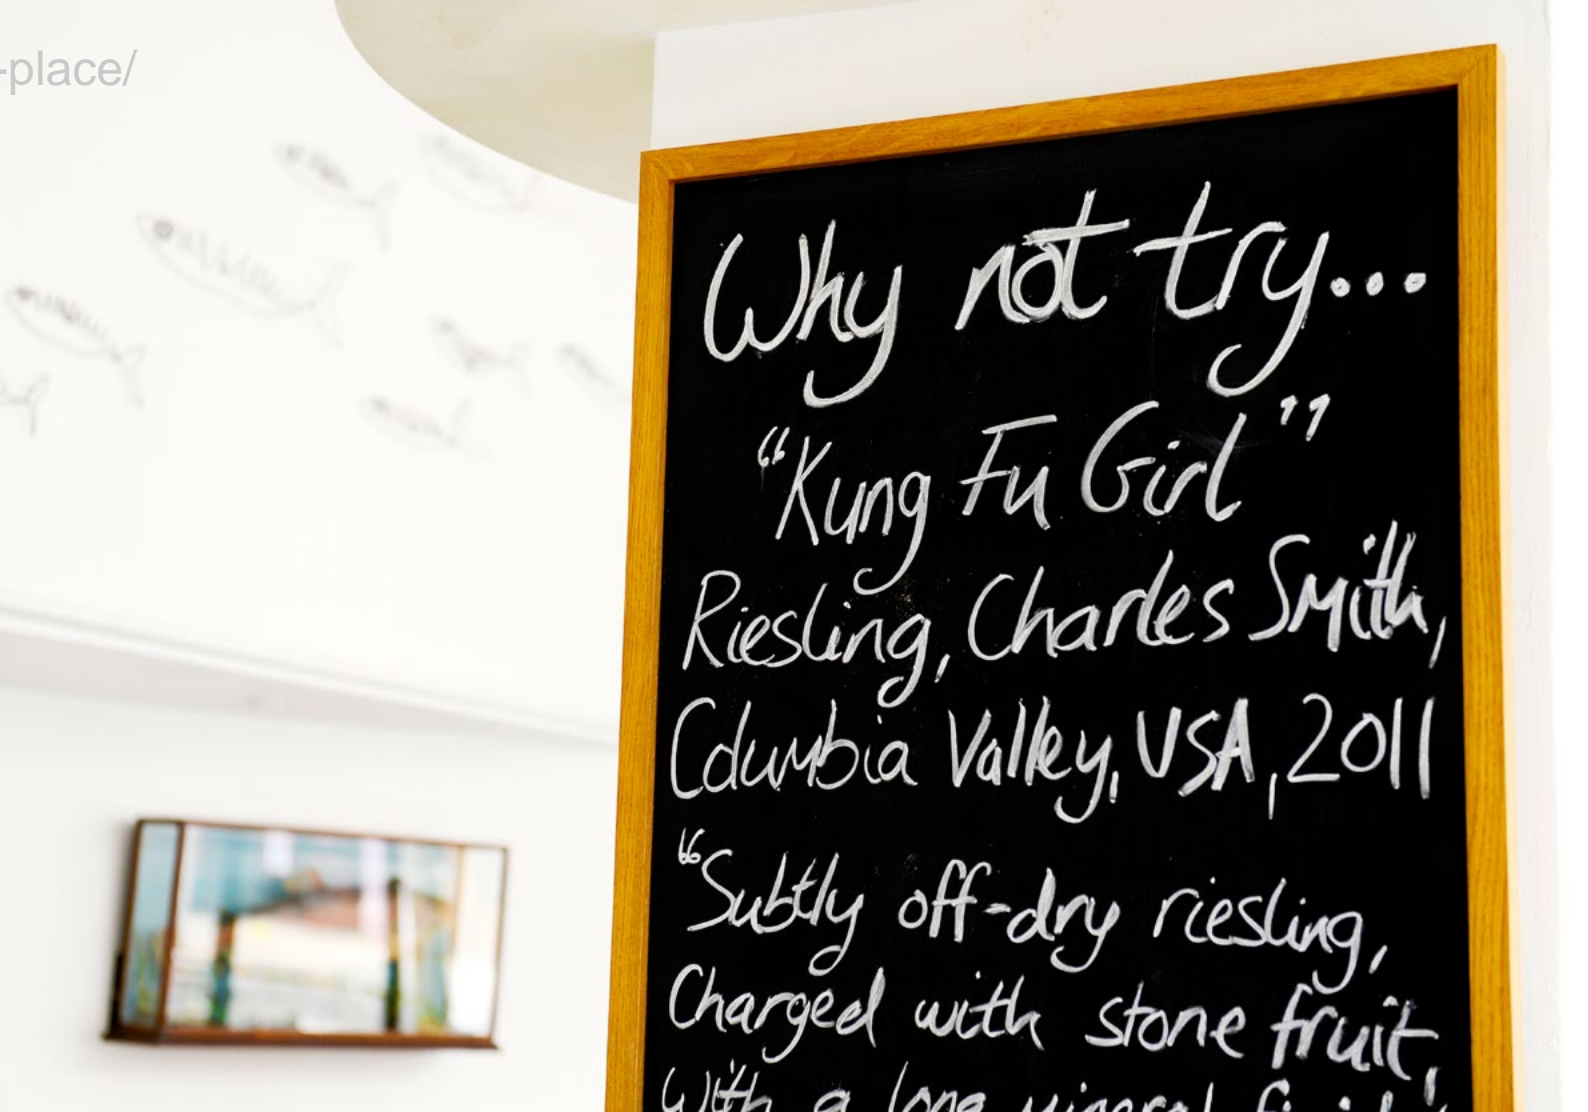 -place/
Why not try...
“Kung Fu Girl”
Riesling, Charles Smith,
Columbia Valley, USA, 2011
“Subtly off-dry riesling,
Charged with stone fruit,
With a long mineral